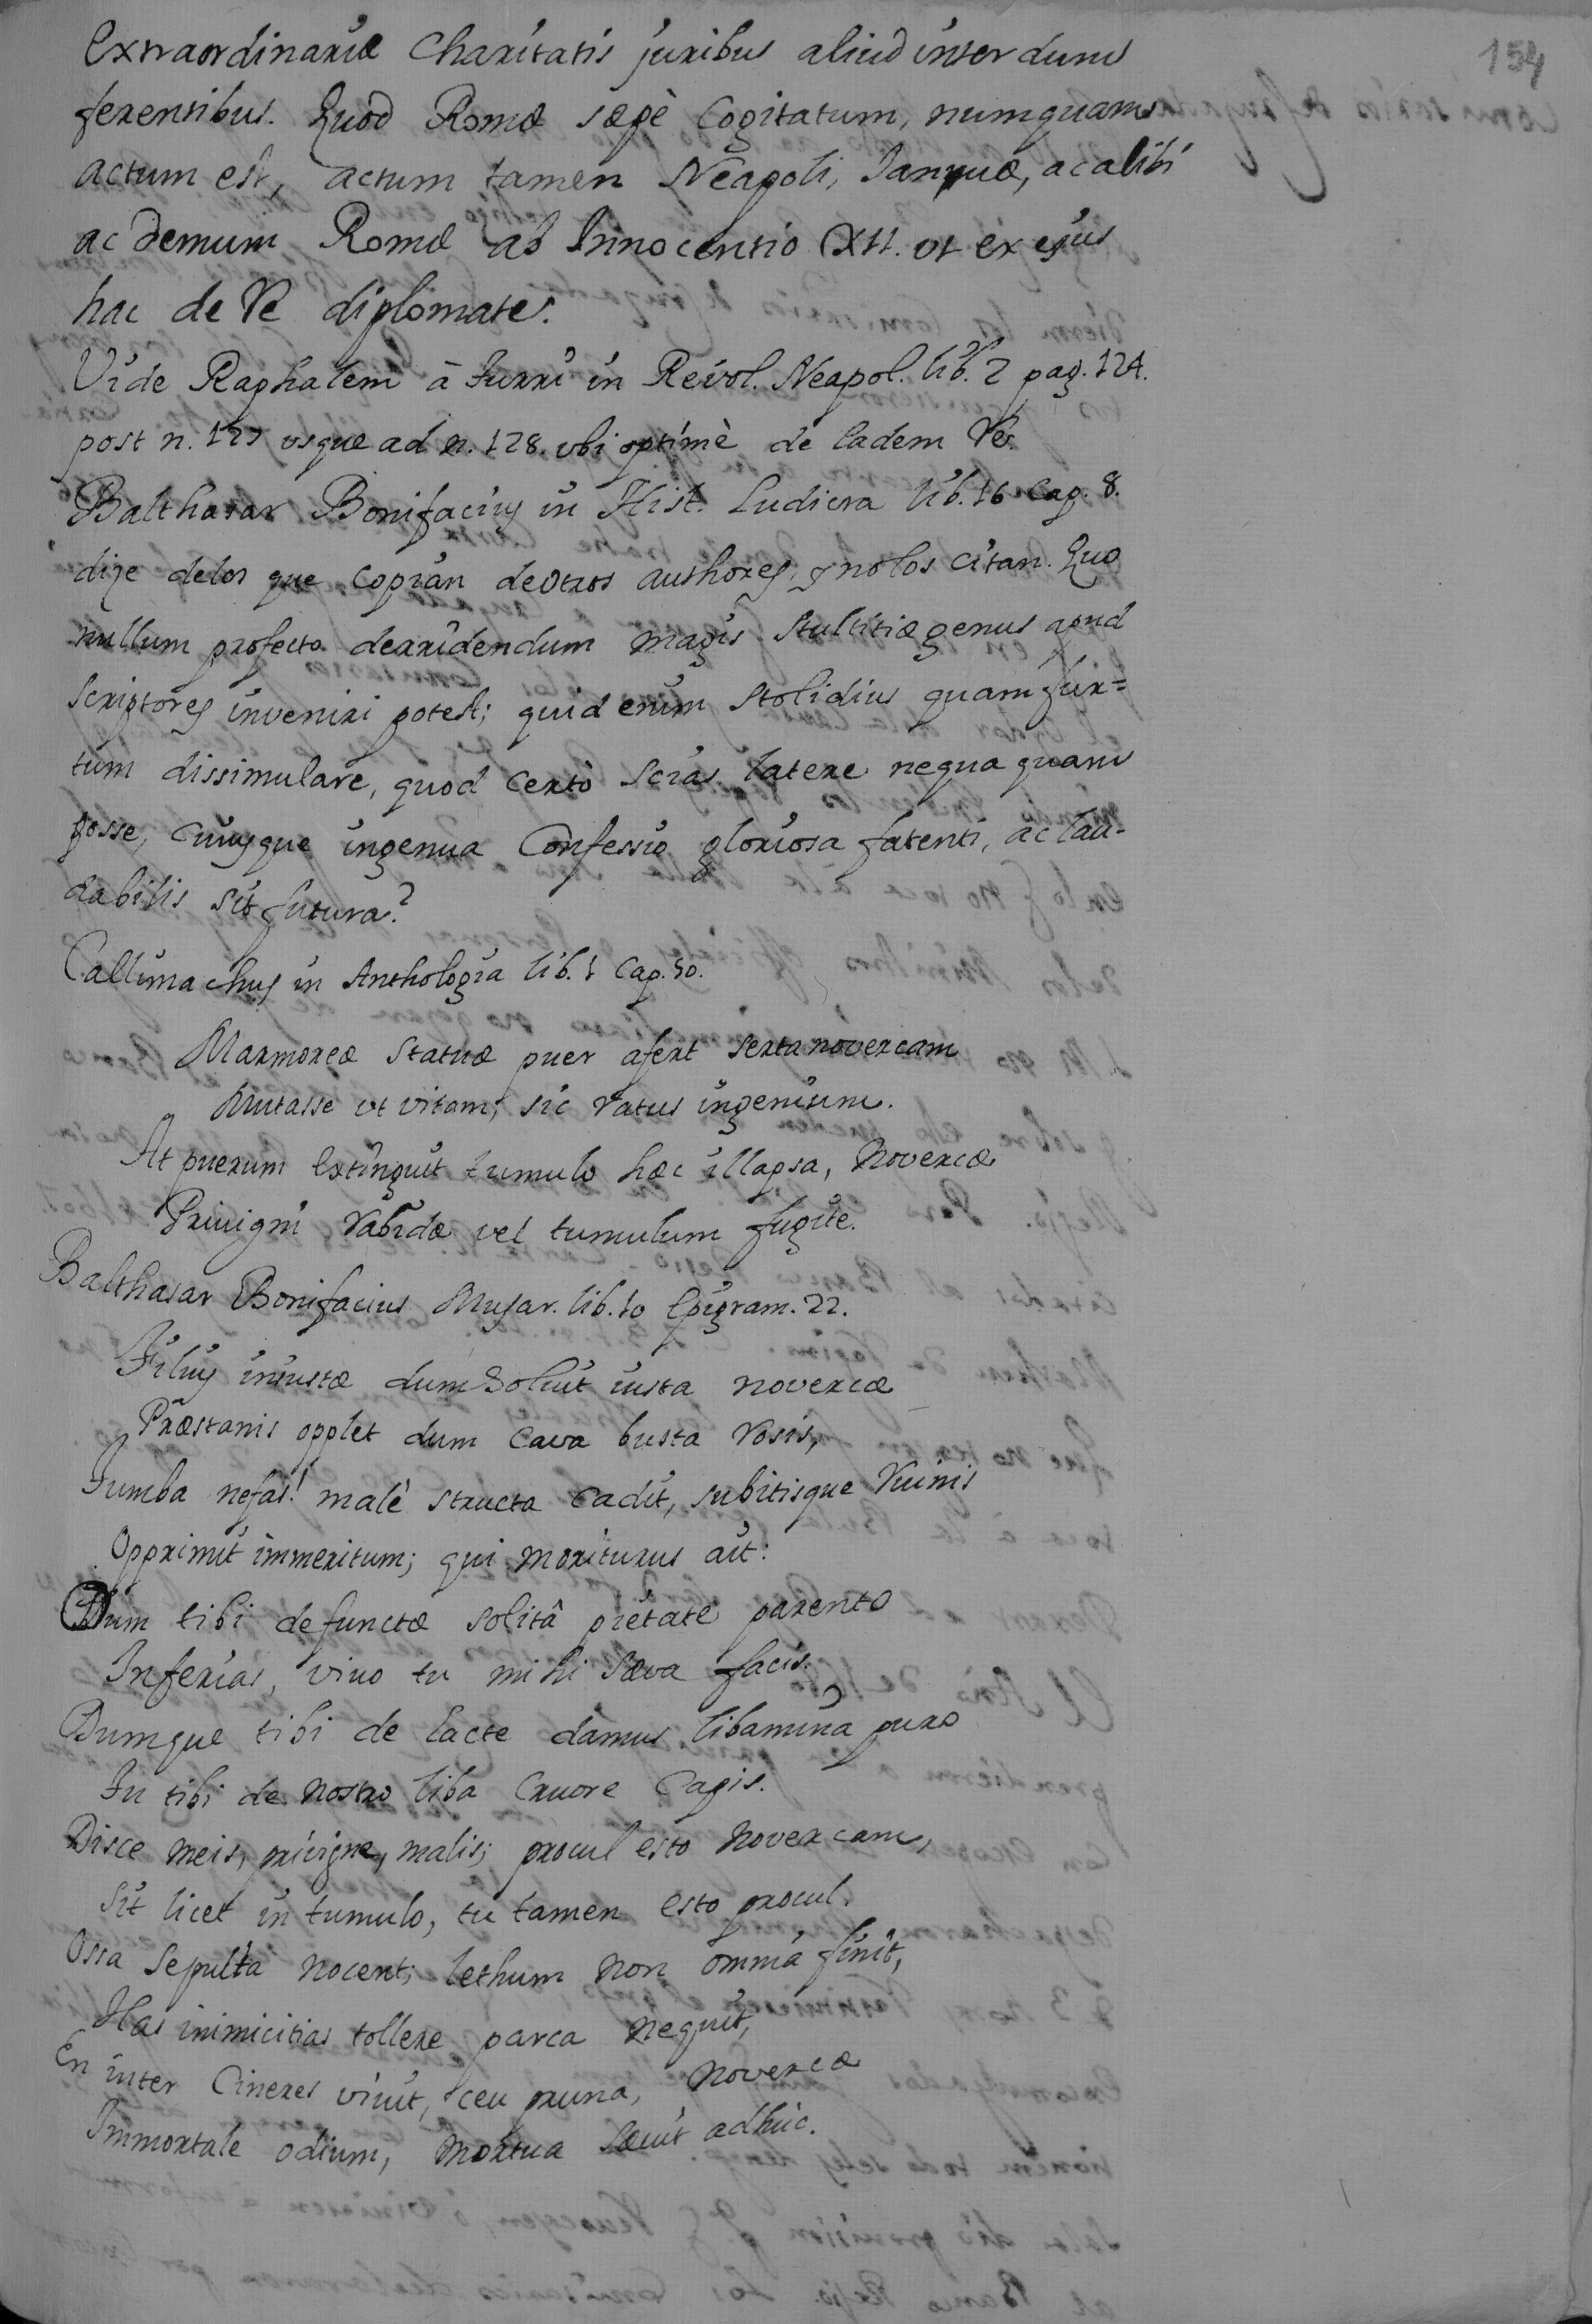 154
extraordinariæ Charitatis juribus aliud interdum
ferentibus. Quod Romæ sæpè Cogitatum, numquam
actum est, actum tamen Neapoli, Januæ, ac alibi
ac demum Romæ ab Innocentio XII. ut ex ejus
hac de Re diplomate.
Vide Raphalem à Turri in Revol. Neapol. lib. 2 pag. 124.
post n. 127 usque ad n. 128. ubi optimè de eadem Re.
Balthasar Bonifacius in Hist. Ludicra lib. 16 Cap. 8.
dize delos que copian deotros authores, y nolos citan. Quo
nullum profecto derridendum magis stultitiæ genus apud
scriptores inveniri potest; quid enim stolidius quam fur=
tum dissimulare, quod certò scias latere nequaquam
posse, cuiusque ingenua Confessio gloriosa fatenti, ac lau-
dabilis sit futura?
Callimachus in Anthologia lib. 1 Cap. 50.
Marmoreæ statuæ puer afert serta novercam
Mutasse ut vitam, sic ratus ingenium.
At puerum extinguit tumulo hæc illapsa, Novercæ
Privigni rabidæ vel tumulum fugite.
Balthasar Bonifacius Musar. lib. 10 Epigram. 22.
Filius iniustæ dum Soluit iusta novercæ
Præstanis opplet dum cava busta rosis,
Tumba nefas! malè structa cadit, subitisque Ruinis
Opprimit immeritum; qui moriturus ait:
Dum tibi defunctæ solitâ pietate parento
Inferias, vivo tu mihi sæva facis.
Dumque tibi de lacte damus libamina puro
Tu tibi de nostro liba Cruore Capis.
Disce meis, privigne, malis; procul esto Novercam,
Sit licet in tumulo, tu tamen esto procul.
Ossa Sepulta nocent; lethum non omnia finit,
Has inimicitias tollere parca nequit,
En inter Cineres vivit, ceu pruna, Novercæ
Immortale odium, Mortua sævit adhuc.